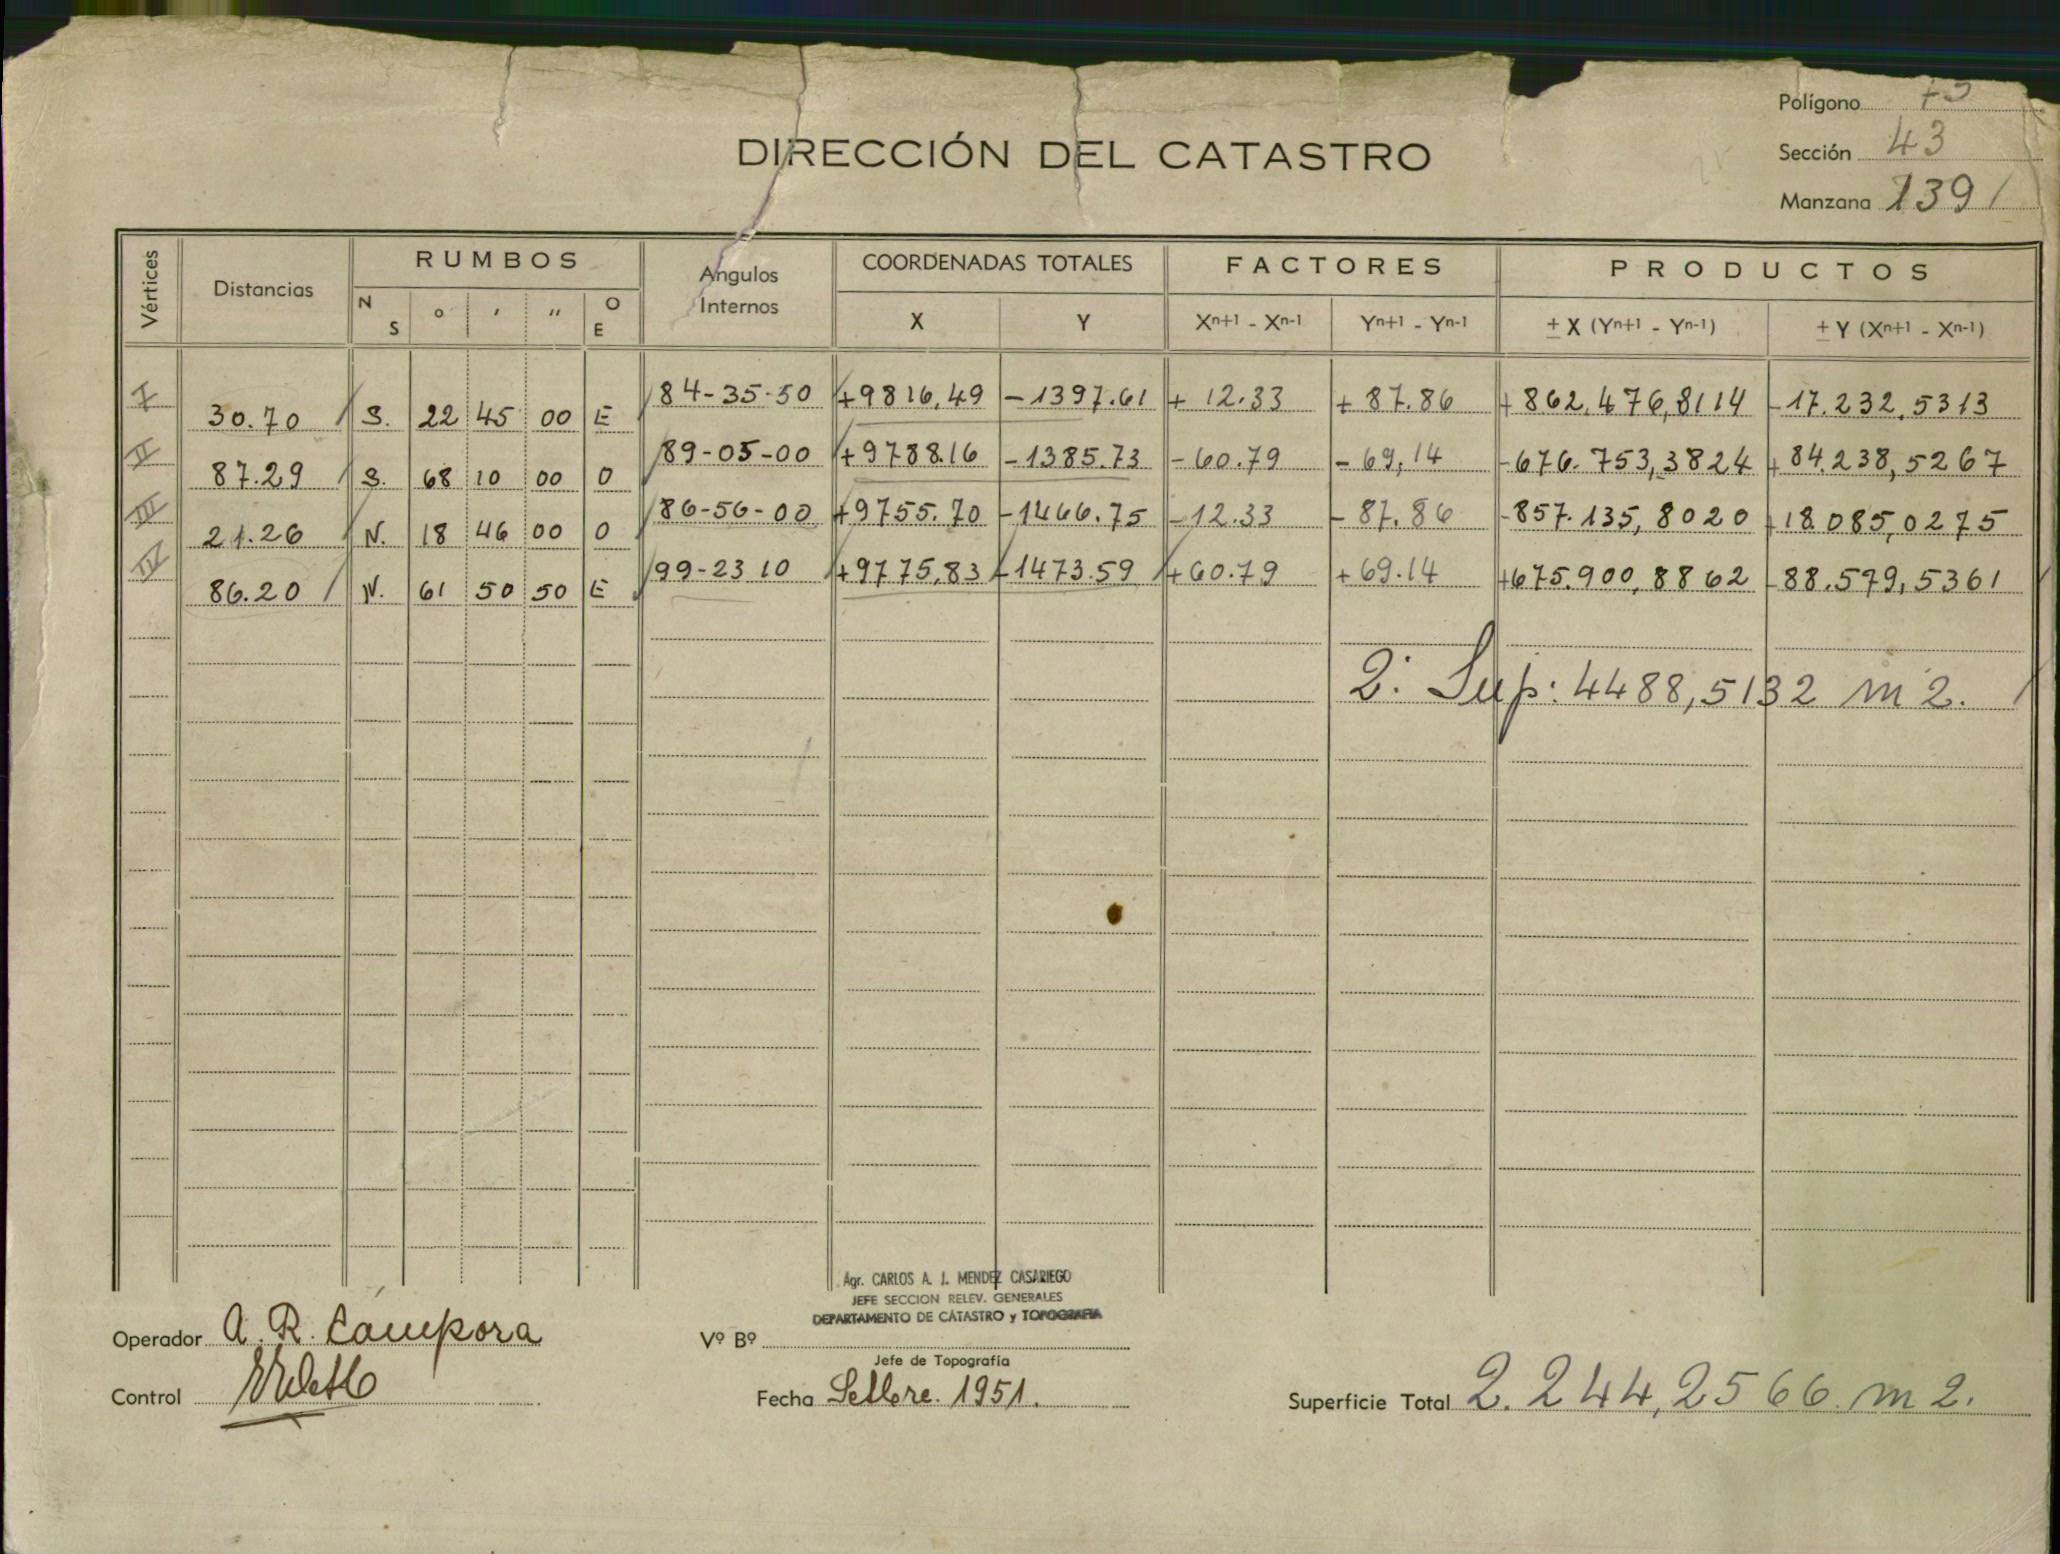 Polígono 75
Sección 43
DIRECCIÓN DEL CATASTRO
Manzana 139
Vértices Distancias RUMBOS Angulos Internos COORDENADAS TOTALES FACTORES PRODUCTOS
N S o ′ ″ O E X Y Xn+1 - Xn-1 Yn+1 - Yn-1 ± X (Yn+1 - Yn-1) ± Y (Xn+1 - Xn-1)
I 84-35-50 +9816,49 -1397.61 + 12.33 + 87.86 +862.476,8114 -17.232,5313
30.70 S. 22 45 00 E
II 89-05-00 +9788.16 -1385.73 -60.79 -69,14 -676.753,3824 +84.238,5267
87.29 S. 68 10 00 O
III 86-56-00 +9755.70 -1466.75 -12.33 -87.86 -857.135,8020 +18.085,0275
21.26 N. 18 46 00 O
IV 99-23 10 +9775,83 -1473.59 +60.79 +69.14 +675.900,8862 -88.579,5361
86.20 N. 61 50 50 E
2. Sup: 4488,5132 m2.
Agr. CARLOS A. J. MENDEZ CASARIEGO
JEFE SECCION RELEV. GENERALES
DEPARTAMENTO DE CATASTRO y TOPOGRAFIA
Operador A. R. Cámpora
Vº Bº
Jefe de Topografía
Control
Fecha Setbre. 1951.
Superficie Total 2.244,2566 m2.